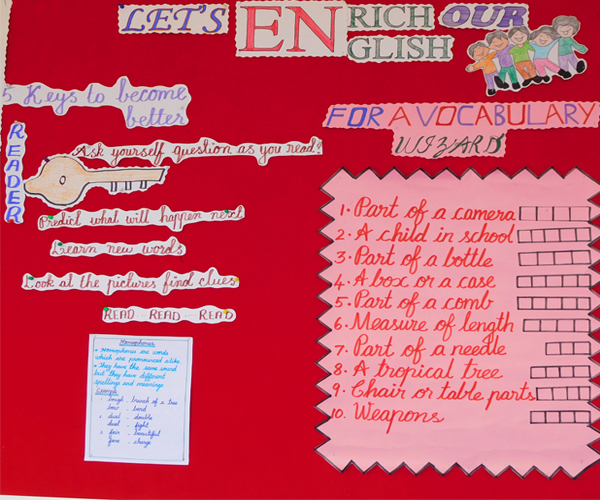 LET'S ENRICH OUR
ENGLISH
5 Keys to become
better
READER
Ask yourself question as you read?
Predict what will happen next
Learn new words
Look at the pictures find clues
READ READ - READ
Homophones
Homophones are words
which are pronounced alike.
They have the same sound
but they have different
spellings and meanings
Example
bough - branch of a tree
bow - bend
dual - double
duel - fight
fair - beautiful
fare - charge
FOR A VOCABULARY
WIZARD
1. Part of a camera
2. A child in school
3. Part of a bottle
4. A box or a case
5. Part of a comb
6. Measure of length
7. Part of a needle
8. A tropical tree
9. Chair or table parts
10. Weapons